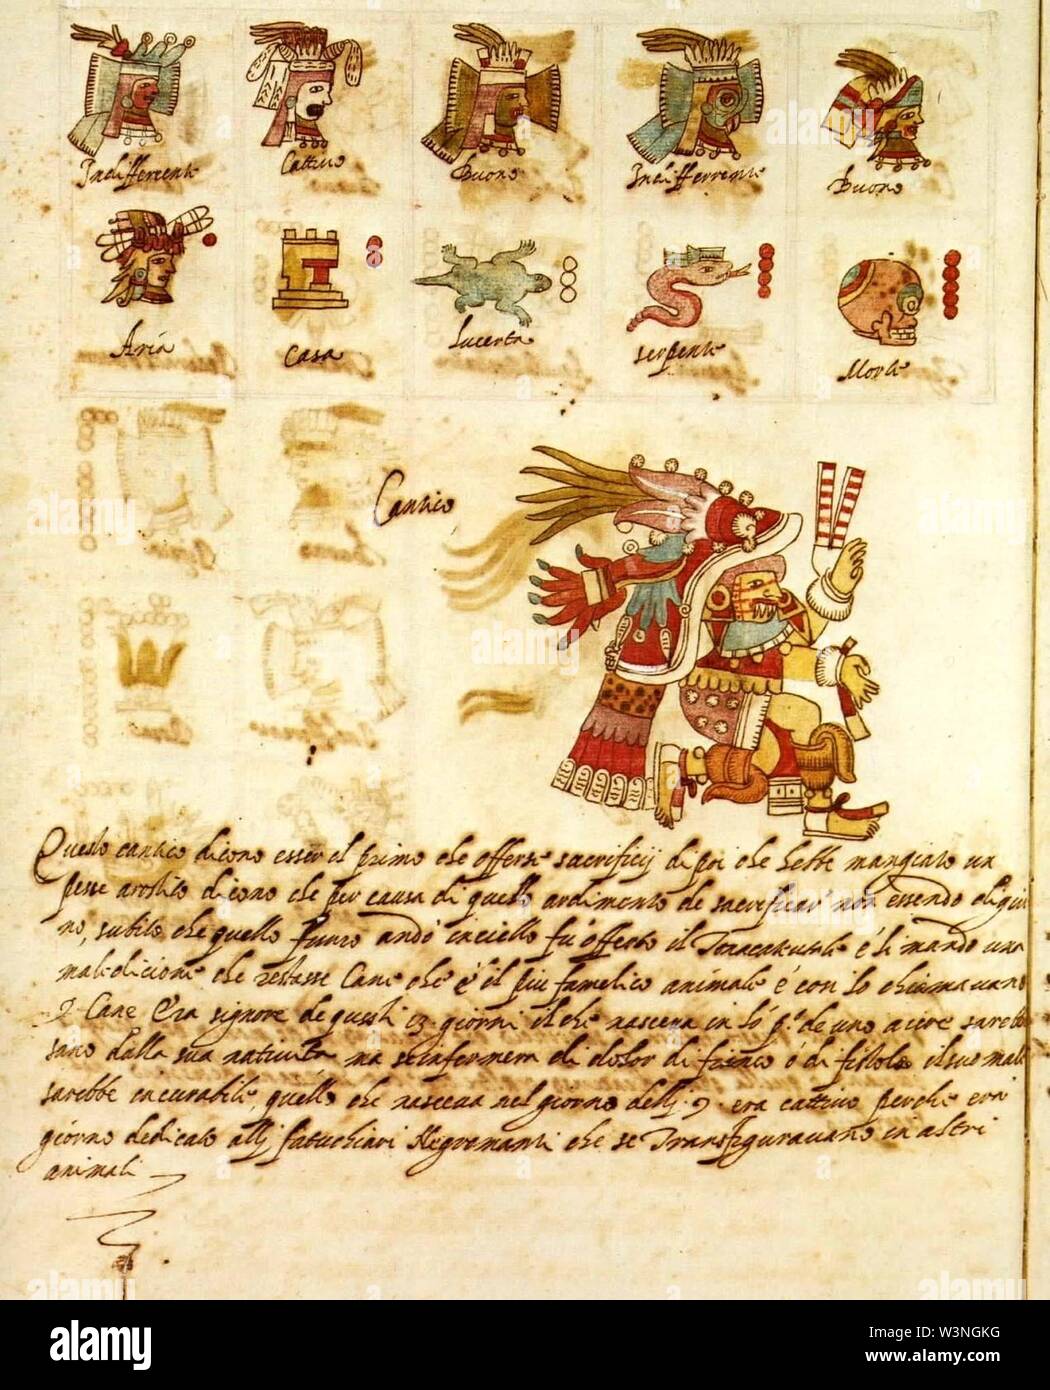 Indifferente Cattivo Buono Indifferente Buono
Aria Casa Lucerta Serpente Morte
Cantico
Questo cantico dicono esser el primo che offerse sacrificij di poi che hebbe mangiato un
pesse arostito dicono che per causa di quello ardimento de sacrificar non essendo digiu
no, subito che quello fumo andò in cielo fù offesto il Tonacatecutle è li mandò una
maledicione che restasse Cane che è il piu famelico animale è cosi lo chiamavano
9 Cane Era signore de questi 13 giorni il che nasceva in lo pº de uno aere sarebbe
sano dalla sua natività, ma se infermera di dolor di fianco ó di fistola il suo mal
sarebbe incurabile, quello che nasceva nel giorno delli .9. era cattivo perche era
giorno dedicato allj fatuchiari Negromanti che se Transfiguravano in altri
animali
alamy stock photo
W3NGKG
www.alamy.com